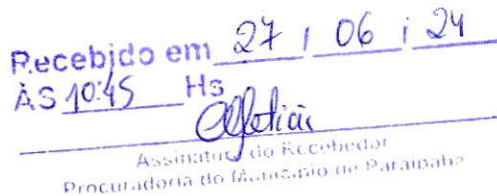 Recebido em 27 / 06 / 24
ÀS 10:45 Hs
Assinatura do Recebedor
Procuradoria do Município de Paraipaba